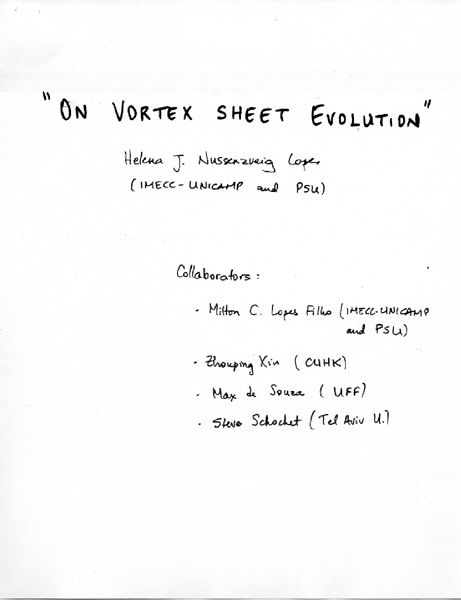 "ON VORTEX SHEET EVOLUTION"
Helena J. Nussenzveig Lopes
(IMECC-UNICAMP and PSU)
Collaborators:
· Milton C. Lopes Filho (IMECC-UNICAMP
and PSU)
· Zhouping Xin (CUHK)
· Max de Souza (UFF)
· Steve Schochet (Tel Aviv U.)